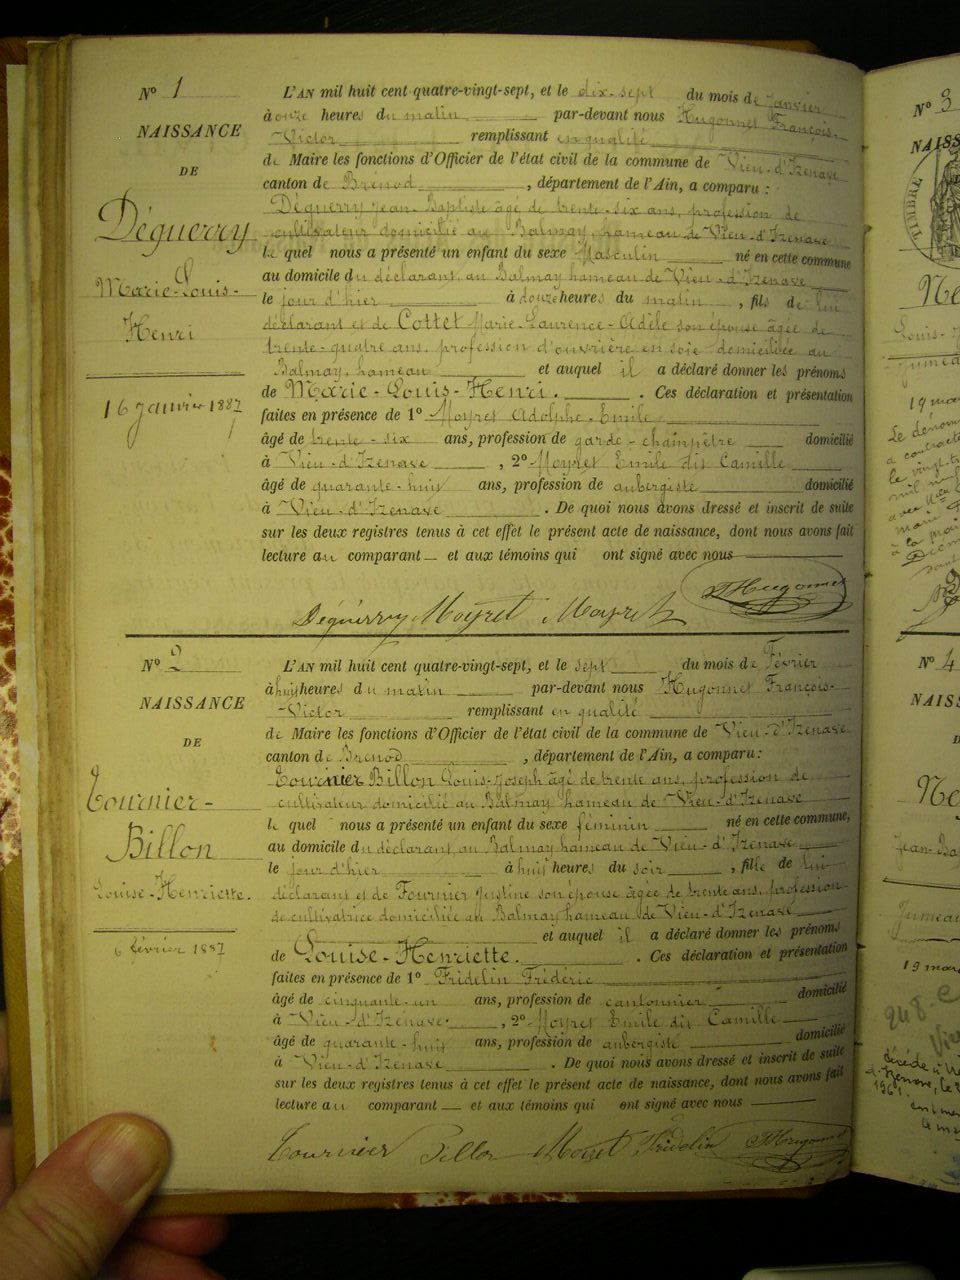 N° 1
NAISSANCE
DE
Déguerry
Marie-Louis-
Henri
16 Janvier 1887
L'AN mil huit cent quatre-vingt-sept, et le dix-sept du mois de Janvier
à onze heures du matin par-devant nous Hugonnet François-
Victor remplissant en qualité
de Maire les fonctions d'Officier de l'état civil de la commune de Vieu-d'Izenave
canton de Brénod, département de l'Ain, a comparu :
Déguerry Jean-Baptiste âgé de trente-six ans, profession de
cultivateur domicilié au Balmay, hameau de Vieu-d'Izenave
le quel nous a présenté un enfant du sexe Masculin né en cette commune
au domicile du déclarant, au Balmay hameau de Vieu-d'Izenave
le jour d'hier à douze heures du matin, fils de lui
déclarant et de Cottet Marie-Laurence-Adèle son épouse âgée de
trente-quatre ans, profession d'ouvrière en soie domiciliée au
Balmay, hameau et auquel il a déclaré donner les prénoms
de Marie-Louis-Henri. Ces déclaration et présentation
faites en présence de 1° Moyret Adolphe-Emile
âgé de trente-six ans, profession de garde-champêtre domicilié
à Vieu-d'Izenave, 2° Moyret Emile dit Camille
âgé de quarante-huit ans, profession de aubergiste domicilié
à Vieu-d'Izenave. De quoi nous avons dressé et inscrit de suite
sur les deux registres tenus à cet effet le présent acte de naissance, dont nous avons fait
lecture au comparant et aux témoins qui ont signé avec nous
Déguerry Moyret Moyret Hugonnet
N° 2
NAISSANCE
DE
Tournier-
Billon
Louise-Henriette.
6 février 1887
L'AN mil huit cent quatre-vingt-sept, et le sept du mois de Février
à huit heures du matin par-devant nous Hugonnet François-
Victor remplissant en qualité
de Maire les fonctions d'Officier de l'état civil de la commune de Vieu-d'Izenave
canton de Brenod, département de l'Ain, a comparu :
Tournier Billon Louis-Joseph âgé de trente ans, profession de
cultivateur domicilié au Balmay hameau de Vieu-d'Izenave
le quel nous a présenté un enfant du sexe féminin né en cette commune,
au domicile du déclarant, au Balmay hameau de Vieu-d'Izenave
le jour d'hier à huit heures du soir, fille de lui
déclarant et de Fournier Justine son épouse âgée de trente ans, profession
de cultivatrice domiciliée au Balmay hameau de Vieu-d'Izenave
et auquel il a déclaré donner les prénoms
de Louise-Henriette. Ces déclaration et présentation
faites en présence de 1° Fridelin Frédéric
âgé de cinquante-un ans, profession de cantonnier domicilié
à Vieu-d'Izenave, 2° Moyret Emile dit Camille
âgé de quarante-huit ans, profession de aubergiste domicilié
à Vieu-d'Izenave. De quoi nous avons dressé et inscrit de suite
sur les deux registres tenus à cet effet le présent acte de naissance, dont nous avons fait
lecture au comparant et aux témoins qui ont signé avec nous
Tournier Billon Moyret Fridelin Hugonnet
N° 3
TIMBRE
19 mar
N° 4
NAISS
Jumeau
19 mars
248
1961